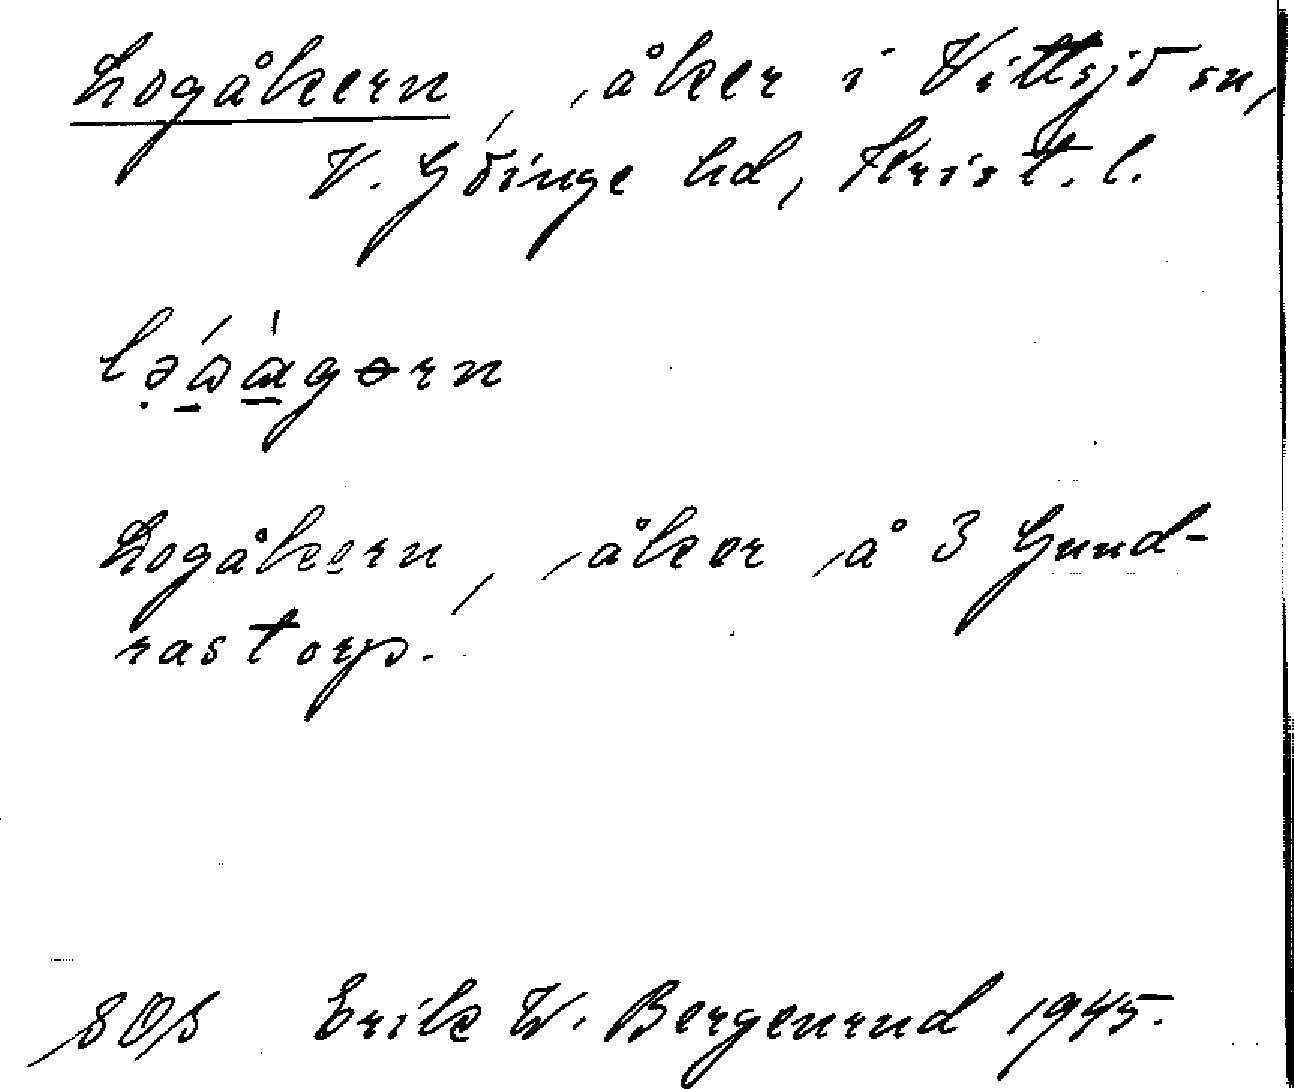 Logåkern, åker i Vittsjö sn,
V. Göinge hd, Krist. l.
Logåkern, åker å 3 Gund-
rastorp.
SOS Erik W. Bergenrud 1945.